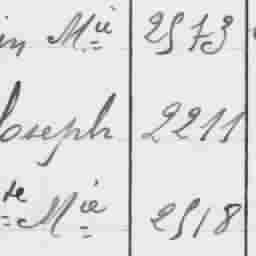 in Mie 2573
Joseph 2211
te Mie 2518